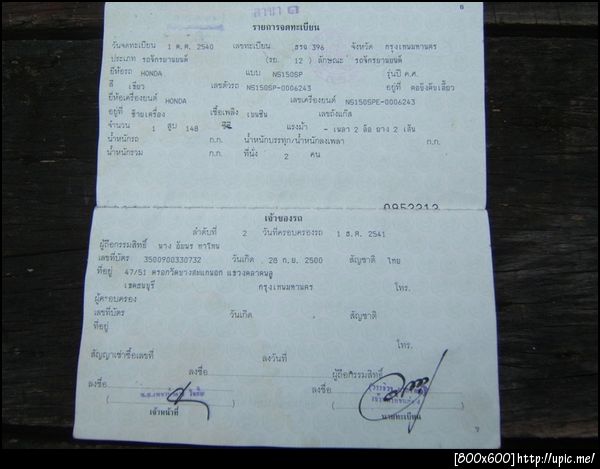 สาขา ๓
8
รายการจดทะเบียน
วันจดทะเบียน 1 ต.ค. 2540 เลขทะเบียน ฮรจ 396 จังหวัด กรุงเทพมหานคร
ประเภท รถจักรยานยนต์ (รย. 12) ลักษณะ รถจักรยานยนต์
ยี่ห้อรถ HONDA แบบ NS150SP รุ่นปี ค.ศ.
สี เขียว เลขตัวรถ NS150SP-0006243 อยู่ที่ คอบังคับเลี้ยว
ยี่ห้อเครื่องยนต์ HONDA เลขเครื่องยนต์ NS150SPE-0006243
อยู่ที่ ซ้ายเครื่อง เชื้อเพลิง เบนซิน เลขถังแก๊ส
จำนวน 1 สูบ 148 ซีซี แรงม้า - เพลา 2 ล้อ ยาง 2 เส้น
น้ำหนักรถ ก.ก. น้ำหนักบรรทุก/น้ำหนักลงเพลา ก.ก.
น้ำหนักรวม ก.ก. ที่นั่ง 2 คน
0952212
เจ้าของรถ
ลำดับที่ 2 วันที่ครอบครองรถ 1 ธ.ค. 2541
ผู้ถือกรรมสิทธิ์ นาง
เลขที่บัตร 3500900330732 วันเกิด 28 ก.ย. 2500 สัญชาติ ไทย
ที่อยู่ 47/51 ตรอกวัดบางสะแกนอก แขวงตลาดพลู
เขตธนบุรี กรุงเทพมหานคร โทร.
ผู้ครอบครอง
เลขที่บัตร วันเกิด สัญชาติ
ที่อยู่
โทร.
สัญญาเช่าซื้อเลขที่ ลงวันที่
ลงชื่อ ผู้ถือกรรมสิทธิ์
ลงชื่อ ลงชื่อ
เจ้าหน้าที่ นายทะเบียน
9
[800x600]http://upic.me/